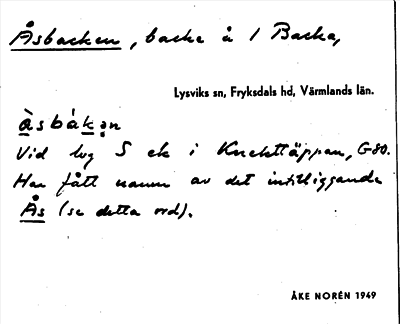 Åsbacken, backe å 1 Backa,
Lysviks sn, Fryksdals hd, Värmlands län.
åsbákən
Vid lvg S ek i Knekttäppan, G80.
Har fått namn av det intilliggande
Ås (se detta ord).
ÅKE NORÉN 1949